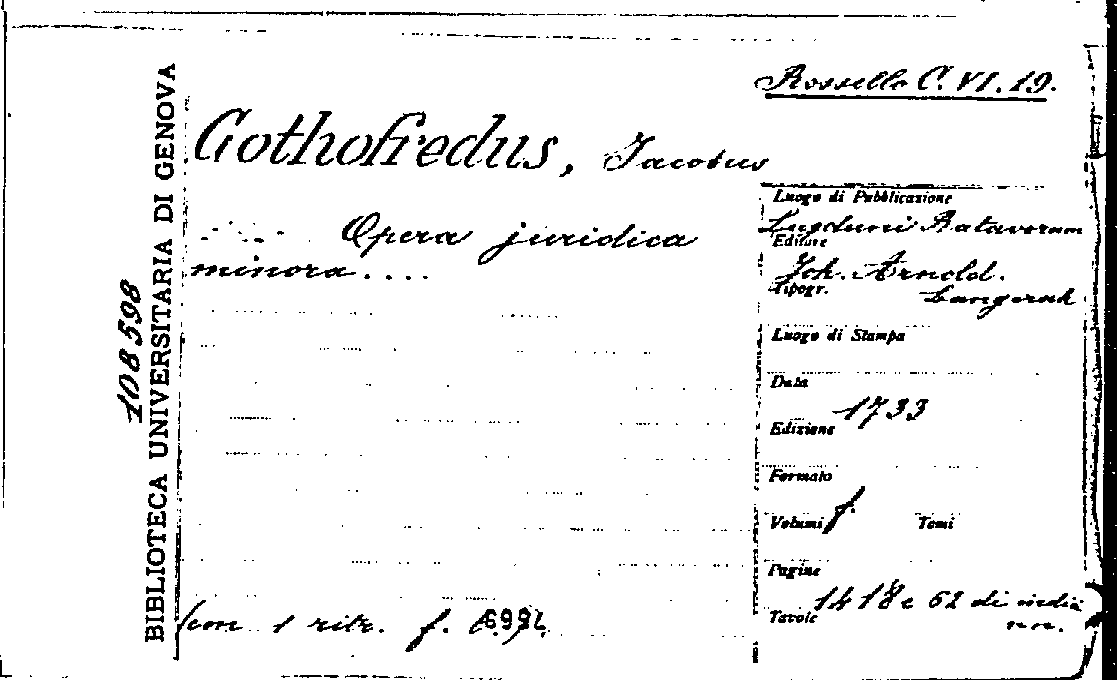 Rossello C. VI. 19.
Gothofredus, Jacobus
Opera juridica
minora....
(con 1 ritr. f.
BIBLIOTECA UNIVERSITARIA DI GENOVA
108598
Luogo di Pubblicazione
Lugduni Batavorum
Editore
Joh. Arnold.
Tipogr. Langerak
Luogo di Stampa
Data
1733
Edizione
Formato
f.
Volumi Tomi
Pagine
1418 e 62 di indici
Tavole nn.